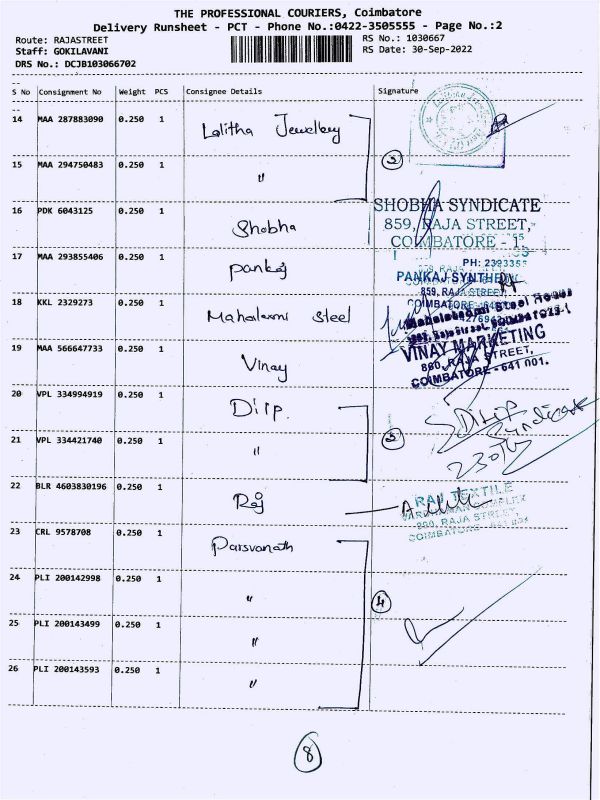 THE PROFESSIONAL COURIERS, Coimbatore
Delivery Runsheet - PCT - Phone No.:0422-3505555 - Page No.:2
Route: RAJASTREET
RS No.: 1030667
Staff: GOKILAVANI
RS Date: 30-Sep-2022
DRS No.: DCJB103066702
S No Consignment No Weight PCS Consignee Details Signature
14 MAA 287883090 0.250 1 Lalitha Jewellery
15 MAA 294750483 0.250 1 "
16 PDK 6043125 0.250 1 Shobha
SHOBHA SYNDICATE
859, RAJA STREET,
COIMBATORE - 1
17 MAA 293855406 0.250 1 Pankaj
PH: 2393355
PANKAJ SYNTHETIC
859, RAJA STREET
COIMBATORE
18 KKL 2329273 0.250 1 Mahalaxmi Steel
Mahalaxmi Steel House
19 MAA 566647733 0.250 1 Vinay
VINAY MARKETING
860, RAJA STREET,
COIMBATORE - 641 001.
20 VPL 334994919 0.250 1 Dilip
21 VPL 334421740 0.250 1 "
Dilip
Syndicate
22 BLR 4603830196 0.250 1 Raj
RAJ TEXTILE
VARDHAMAN COMPLEX
RAJA STREET,
COIMBATORE
23 CRL 9578708 0.250 1 Parsvanath
24 PLI 200142998 0.250 1 "
4
25 PLI 200143499 0.250 1 "
26 PLI 200143593 0.250 1 "
8